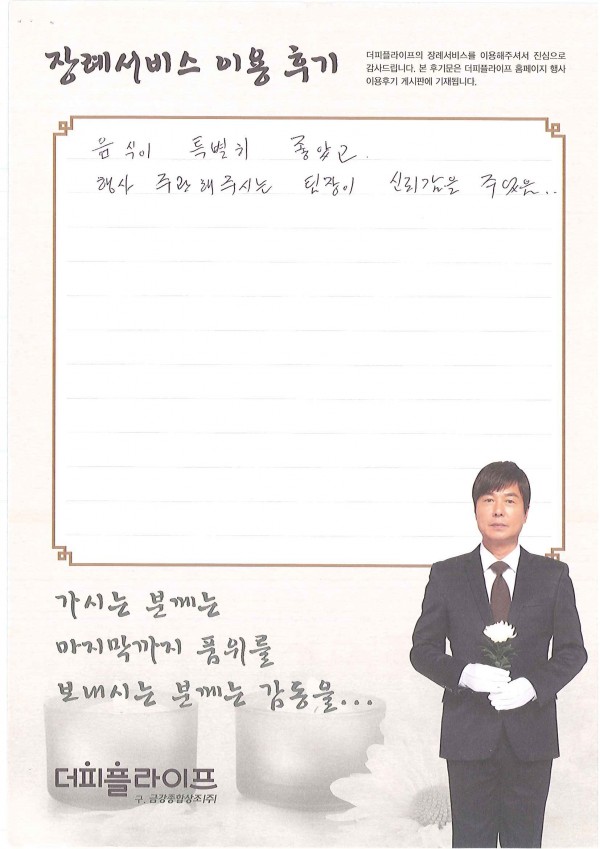 장례서비스 이용 후기
더피플라이프의 장례서비스를 이용해주셔서 진심으로
감사드립니다. 본 후기문은 더피플라이프 홈페이지 행사
이용후기 게시판에 기재됩니다.
음식이 특별히 좋았고.
행사 주관해주시는 팀장이 신뢰감을 주었음..
가시는 분께는
마지막까지 품위를
보내시는 분께는 감동을...
더피플라이프
구. 금강종합상조(주)